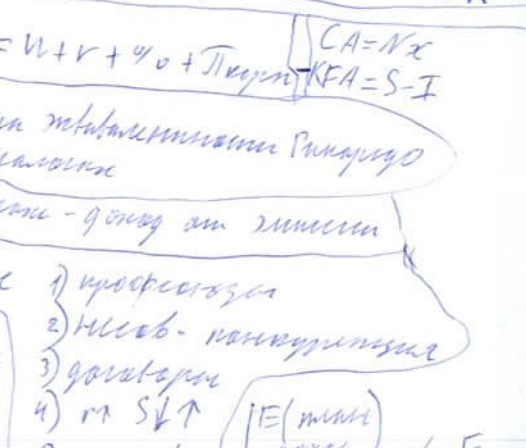 = W + r + % + Пкорп
CA = Nx
KFA = S - I
эквивалентности Рикардо
- доход от эмиссии
1) профсоюзы
2) несов- конкуренция
3) договоры
4) r↑ S↓↑
E (план)